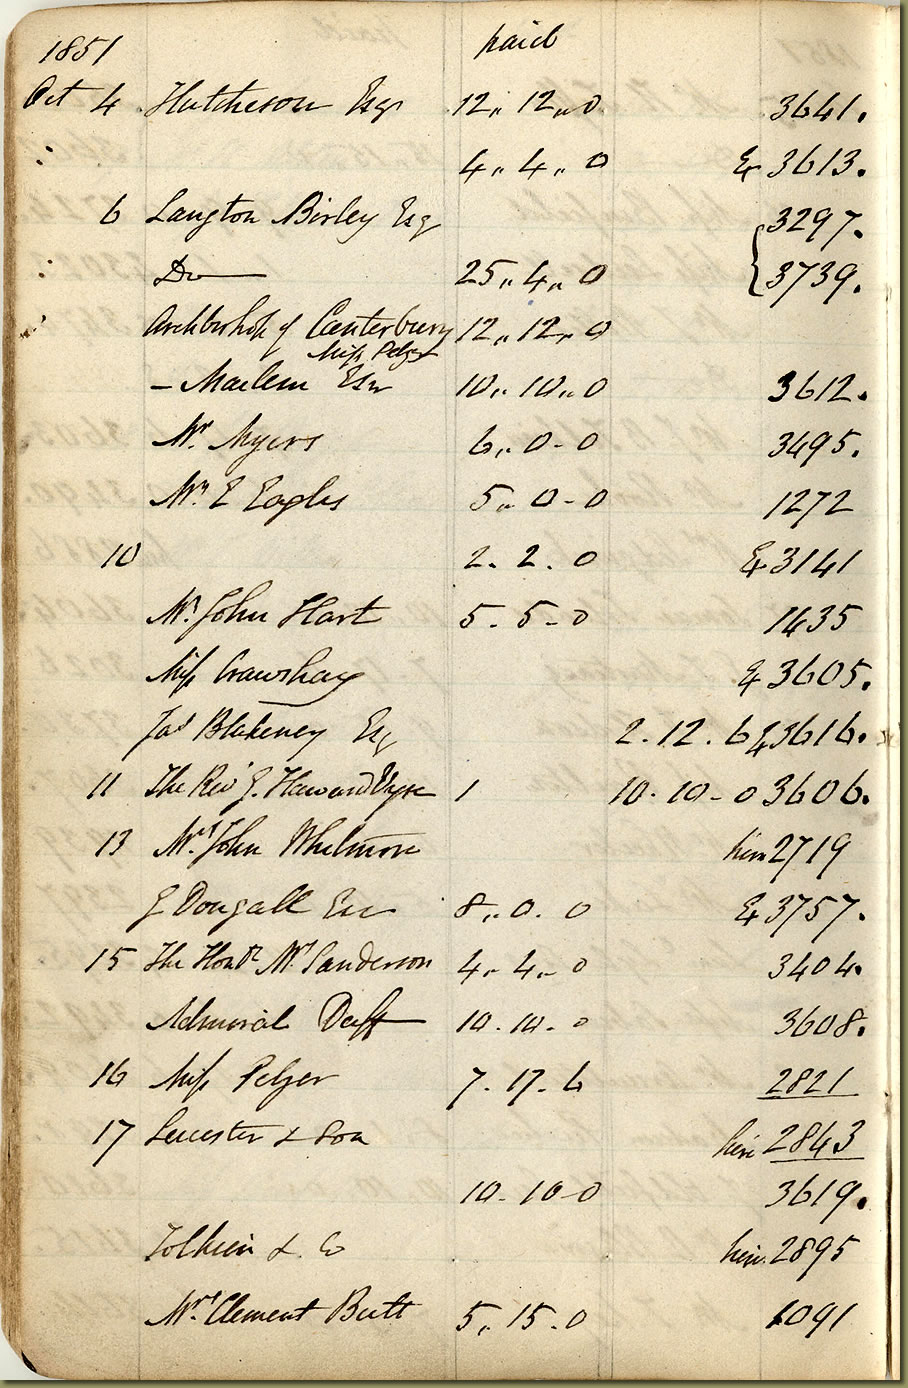 1851 paid
Oct 4 Hutcheson Esqr 12,, 12,, 0 3641.
4,, 4,, 0 & 3613.
6 Langton Birley Esq 3297.
Do 25,, 4,, 0 3739.
Archbishop of Canterbury 12,, 12,, 0
Miss Pelzer
– Maclem Esqr 10,, 10,, 0 3612.
Mr Myers 6,, 0 - 0 3495.
Mr. E Eagles 5,, 0 - 0 1272
10 2. 2. 0 & 3141
Mr. John Hart 5 - 5 - 0 1435
Miss Crawshay & 3605.
Jas Blakeney Esq 2. 12. 6 & 3616.
11 The Revd J. Howard Vyse 1 10. 10 - 0 3606.
13 Mrs John Whitmore hire 2719
J Dougall Esq 8,, 0. 0 & 3757.
15 The Honble Mrs Sanderson 4,, 4,, 0 3404.
Admiral 10. 10. 0 3608.
16 Miss Pelzer 7. 17. 6 2821
17 Leicester & Son hire 2843
10 - 10 - 0 3619.
Tolkien & Co hire 2895
Mrs. Clement Butt 5,, 15. 0 1091